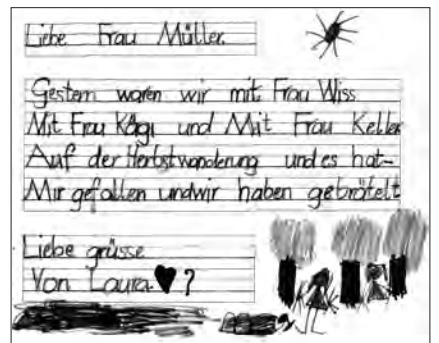 Liebe Frau Müller.
Gestern waren wir mit Frau Wiss
Mit Frau Kägi und Mit Frau Keller
Auf der Herbstwanderung und es hat-
Mir gefallen undwir haben gebrötelt
Liebe grüsse
Von Laura ♥ ?